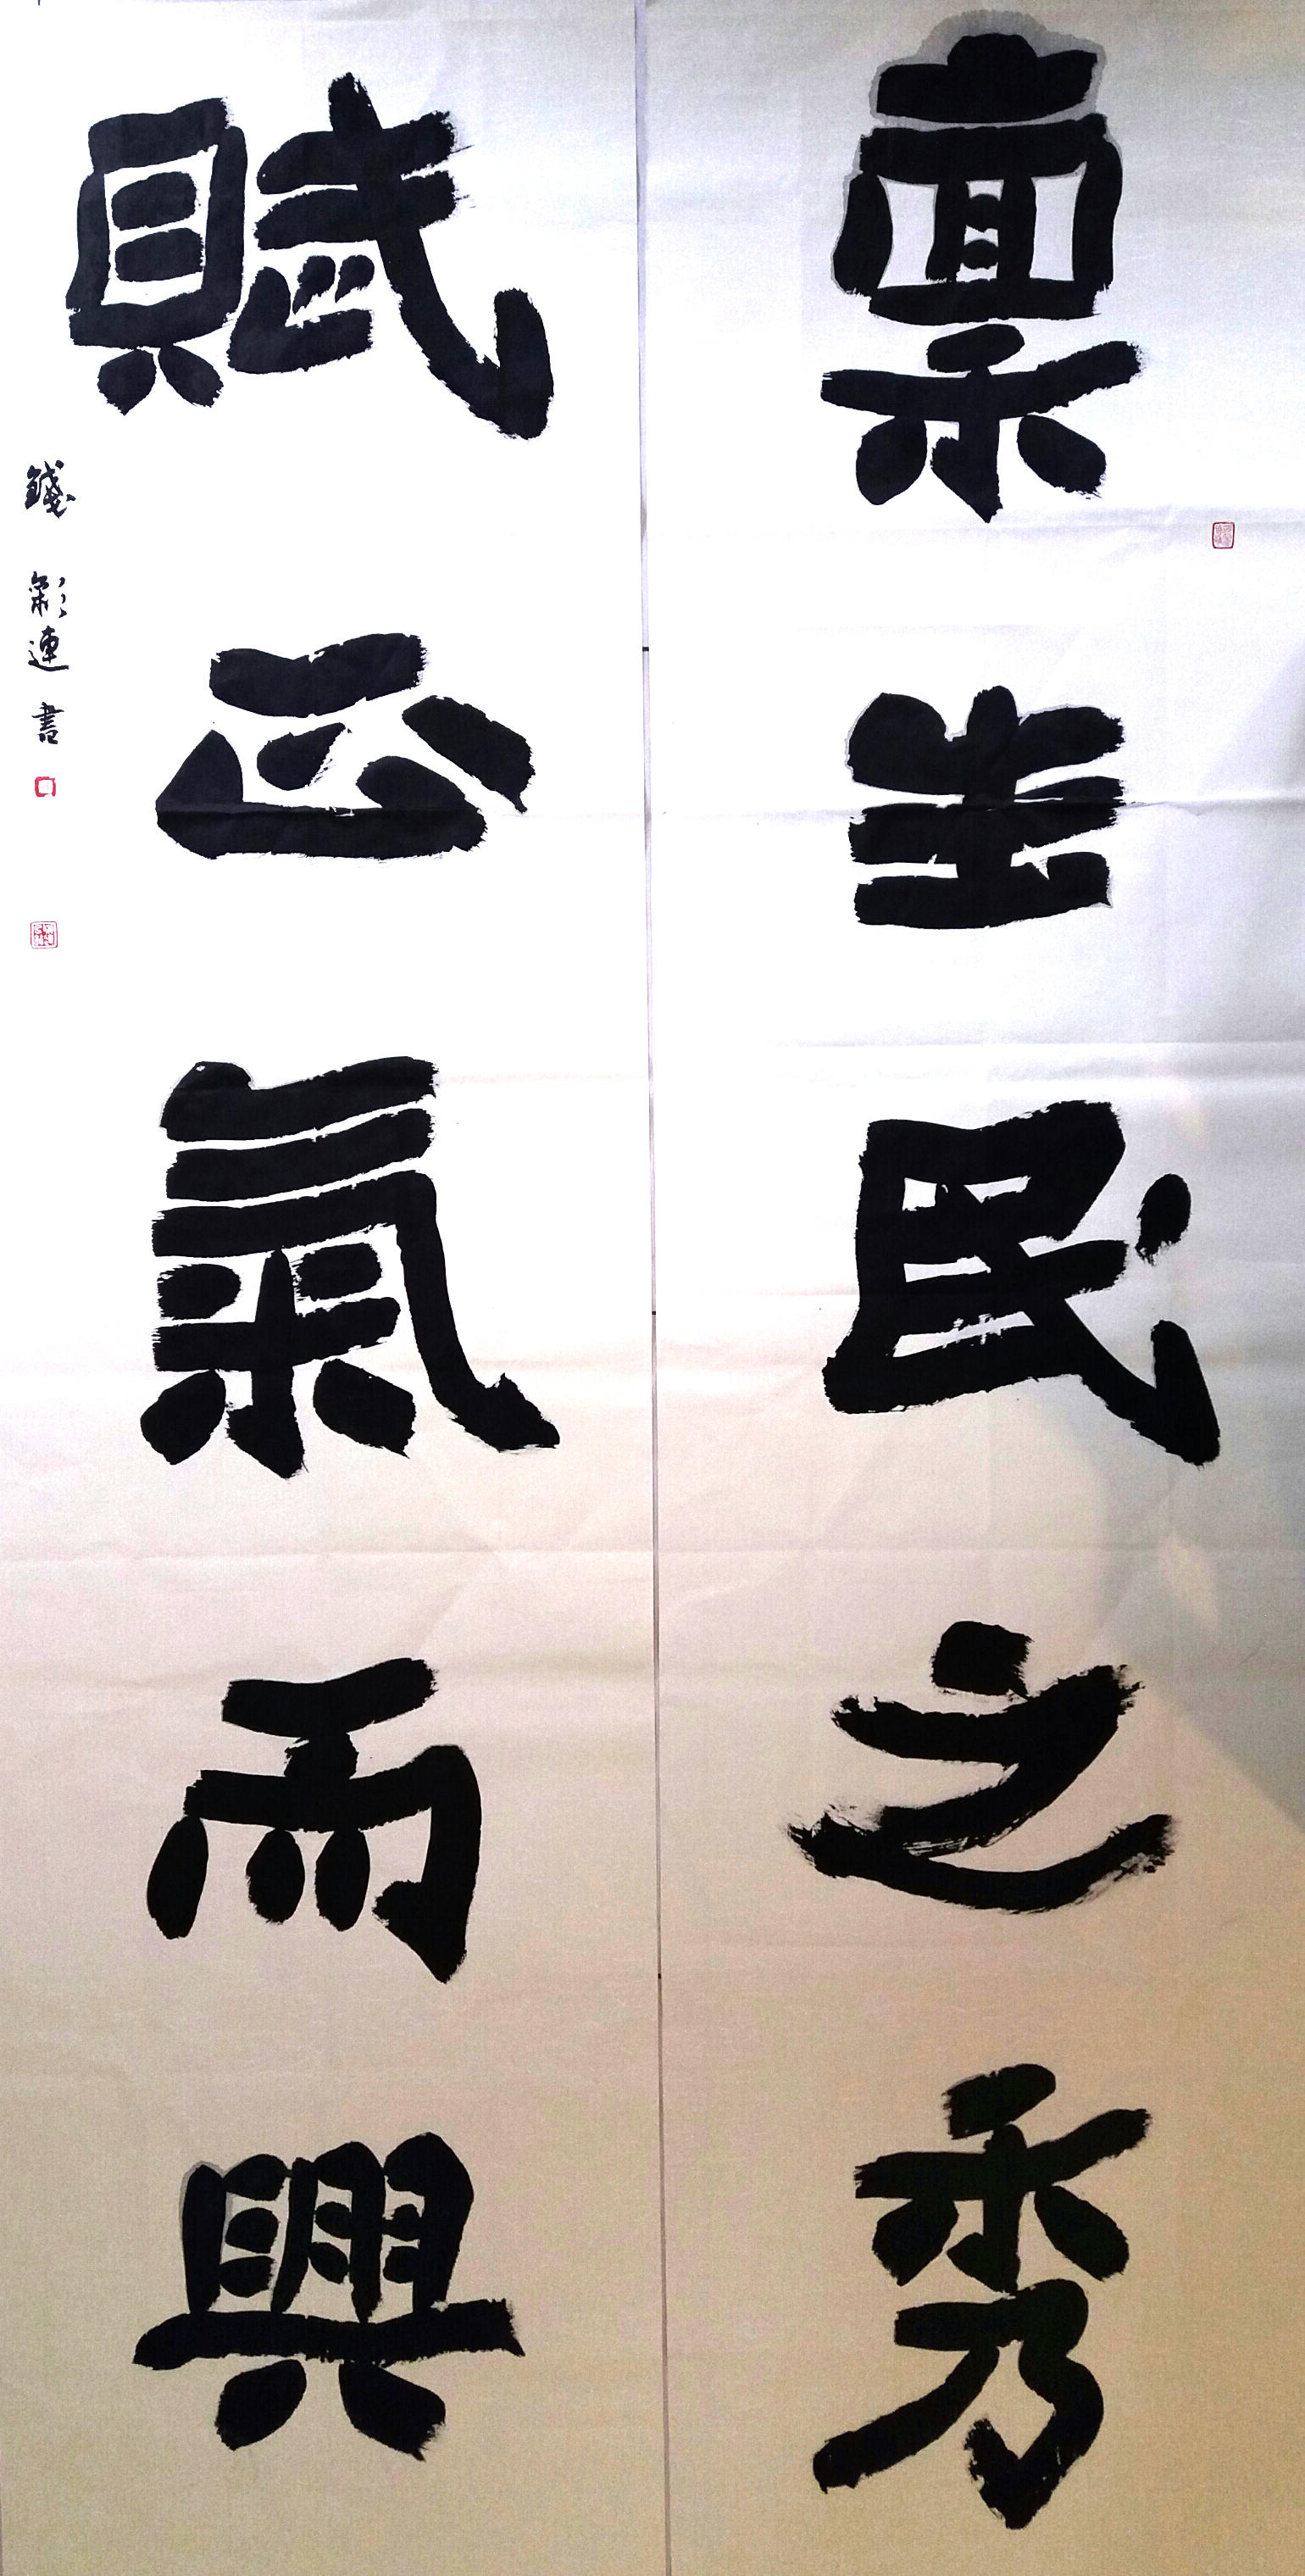 稟生民之秀
賦正氣而興
錢彩連書